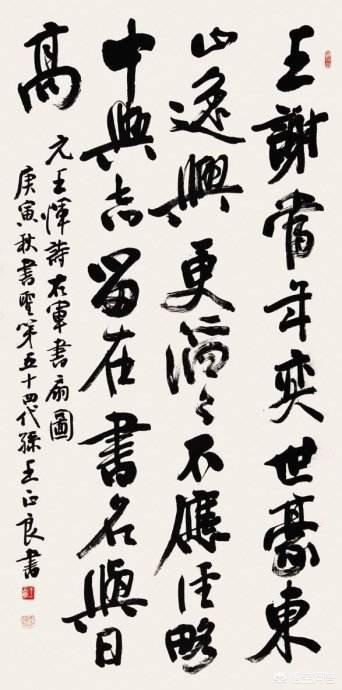 王謝當年奕世豪東
山逸興更滔々不應經略
中興志留在書名與日
高
元王惲詩右軍書扇圖
庚寅秋書聖第五十四代孫王正良書
悟空问答